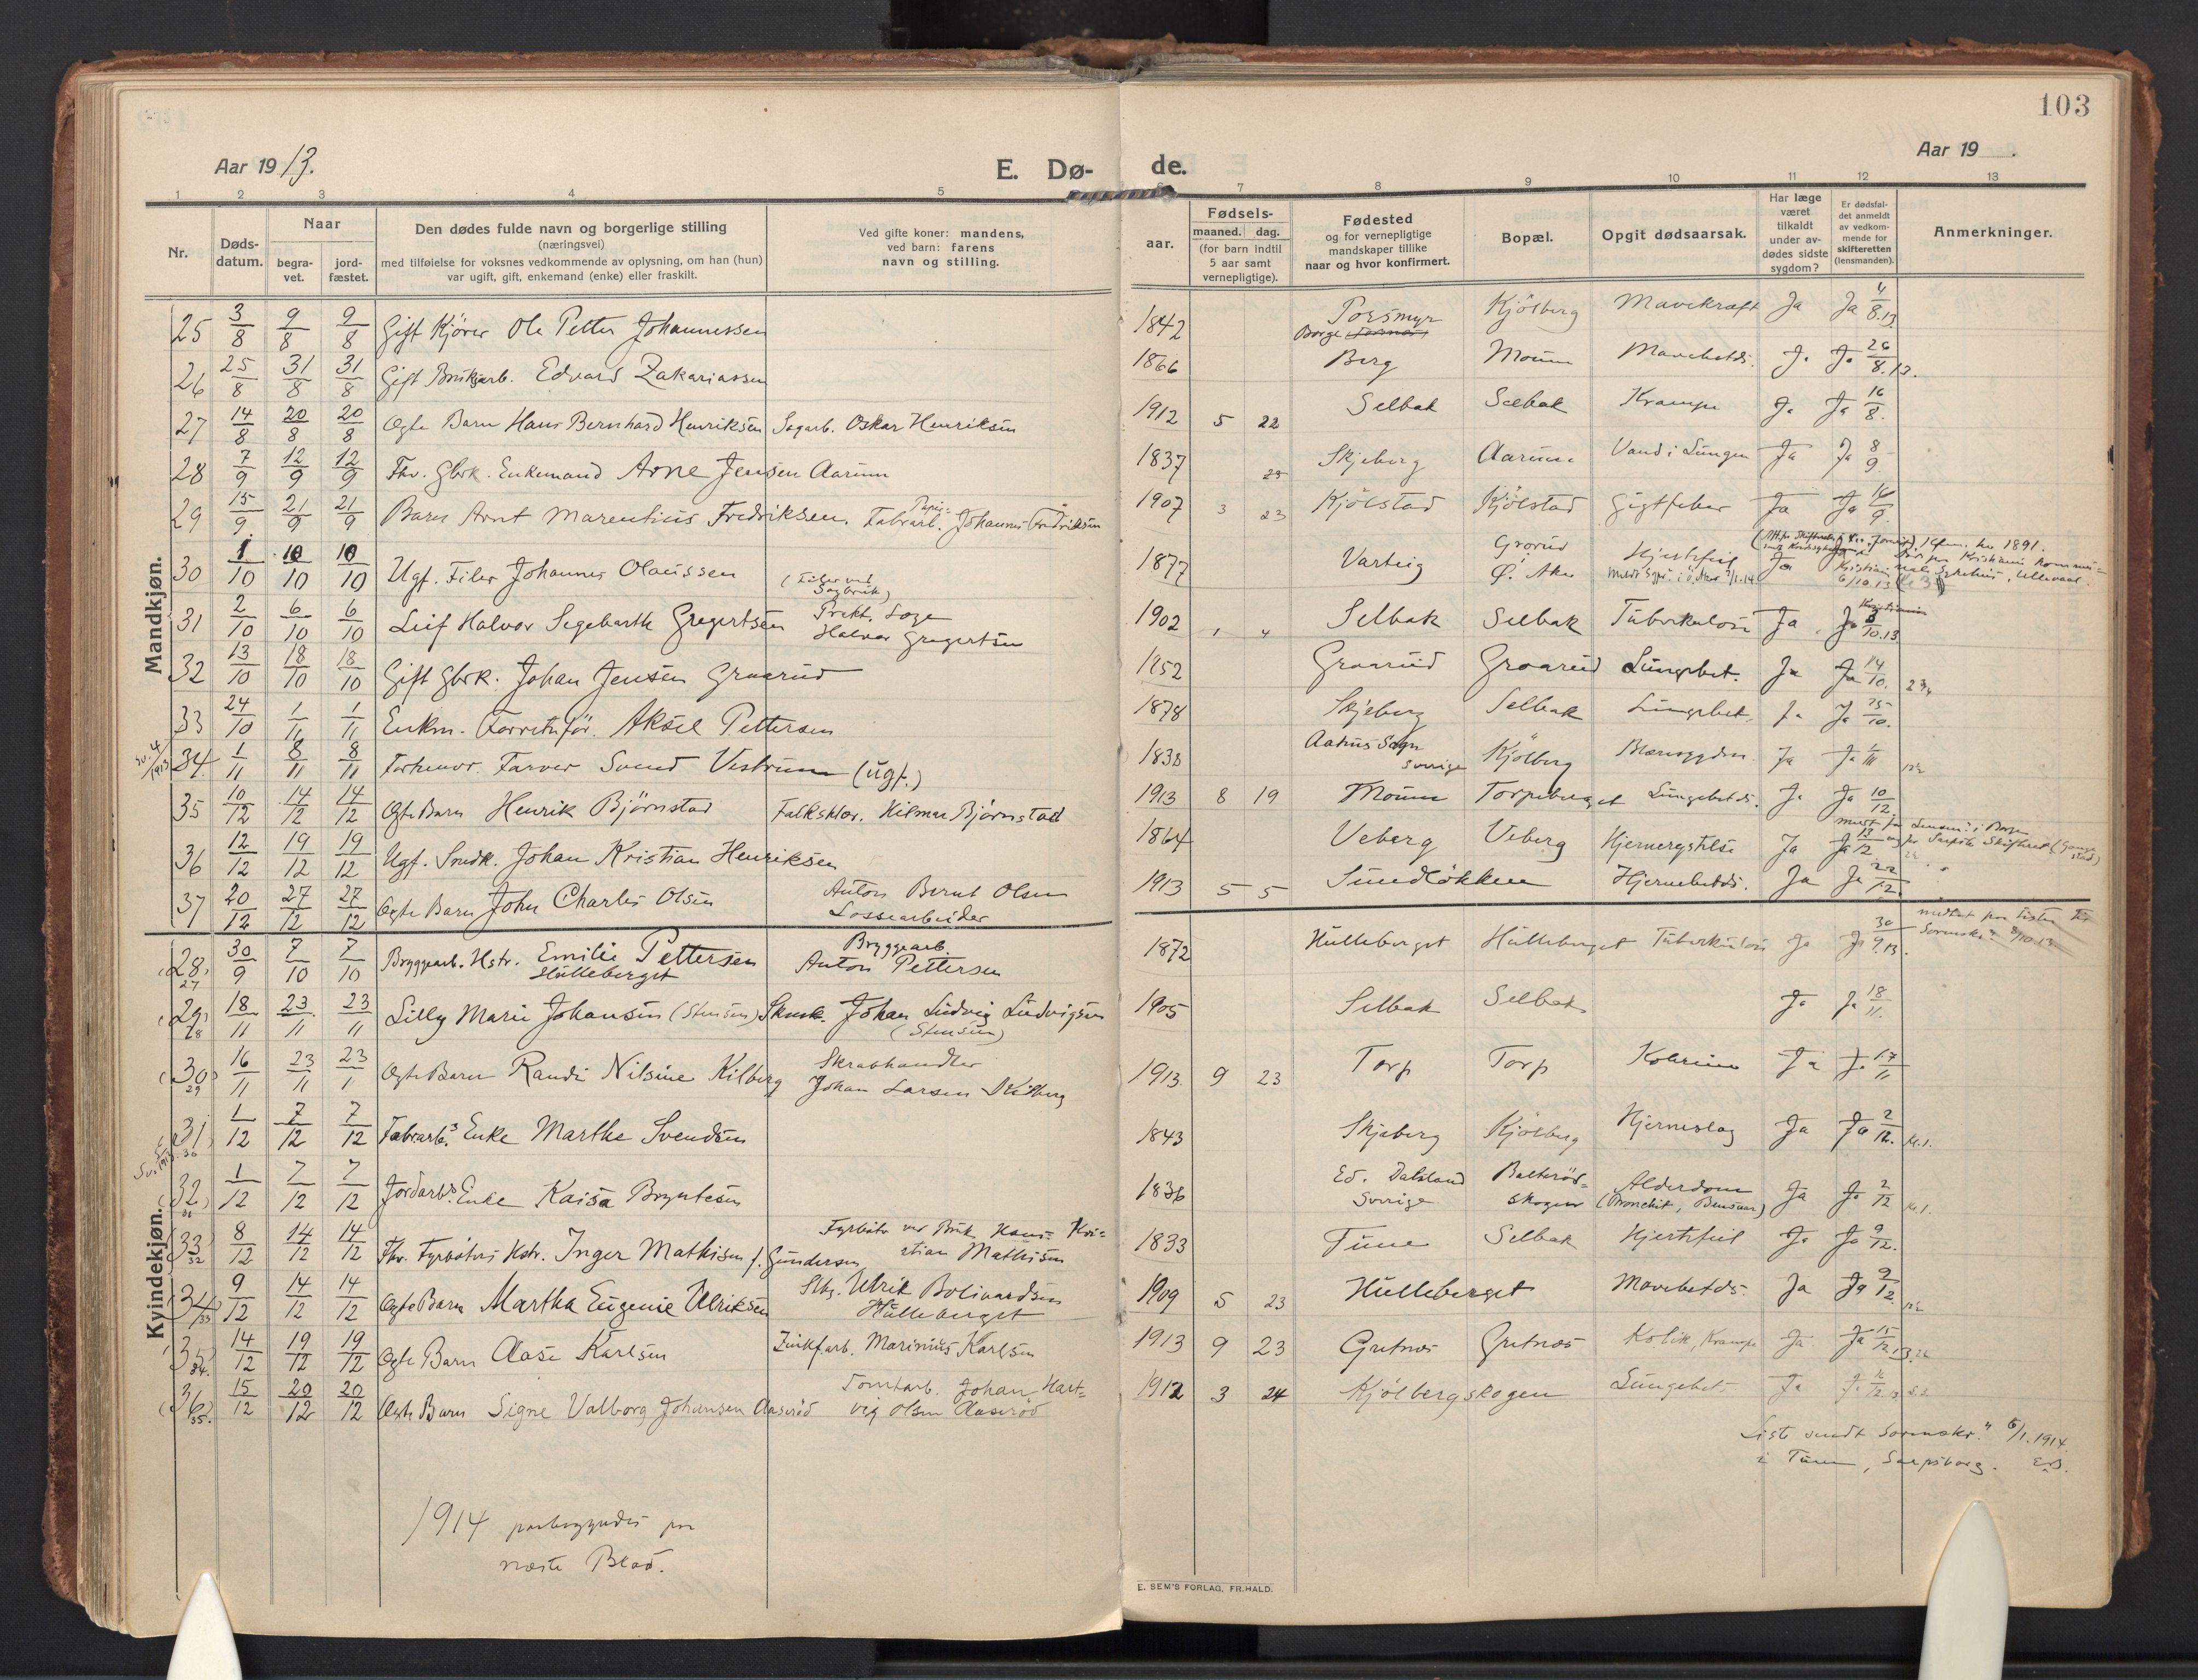 103
Aar 1913.
E. Dø- de.
Aar 19 .
1 2 3 4 5 6 7 8 9 10 11 12 13
Nr.
Døds-
datum.
Naar
begra-
vet.
jord-
fæstet.
Den dødes fulde navn og borgerlige stilling
(næringsvei)
med tilføielse for voksnes vedkommende av oplysning, om han (hun)
var ugift, gift, enkemand (enke) eller fraskilt.
Ved gifte koner: mandens,
ved barn: farens
navn og stilling.
aar.
Fødsels-
maaned. dag.
(for barn indtil
5 aar samt
vernepligtige).
Fødested
og for vernepligtige
mandskaper tillike
naar og hvor konfirmert.
Bopæl.
Opgit dødsaarsak.
Har læge
været
tilkaldt
under av-
dødes sidste
sygdom?
Er dødsfal-
det anmeldt
av vedkom-
mende for
skifteretten
(lensmanden).
Anmerkninger.
Mandkjøn.
25 3/8 9/8 9/8 Gift Kjører Ole Petter Johannessen 1842 Torsmyr Borge Kjölberg Mavekræft Ja Ja 4/8.13.
26 25/8 31/8 31/8 Gift Brukarb. Edvard Zakariassen 1866 Berg Moum Mavebetds. Ja Ja 26/8.13.
27 14/8 20/8 20/8 Ogte Barn Hans Bernhard Henriksen Sagarb. Oskar Henriksen 1912 5 22 Selbak Selbak Krampe Ja Ja 16/8.
28 7/9 12/9 12/9 Fhv. Gbrk. Enkemand Arne Jensen Aarum 1837 23 Skjeberg Aarum Vand i Lungen Ja Ja 8/9.
29 15/9. 21/9 21/9 Barn Arnt Marentius Fredriksen. Papir= Fabrarb. Johannes Fredriksen 1907 3 23 Kjölstad Kjölstad Gigtfeber Ja Ja 16/9.
30 1/10 10/10 10/10 Ugf. Filer Johannes Olaussen (Filer ved Sagbruk) 1877 Varteig Grorud Ö. Aker Hjertefeil Ja 6/10.13
31 2/10 6/10 6/10 Leif Halvor Segebarth Gregertsen Prekt. Loge Halvor Gregertsen 1902 1 4 Selbak Selbak Tuberkulose Ja Ja 3/10.13
32 13/10 18/10 18/10 Gift Gbrk. Johan Jensen Graarud 1852 Graarud Graarud Lungebet. Ja Ja 14/10.
33 24/10 1/11 1/11 Enkm. Forretnför. Aksel Pettersen 1878 Skjeberg Selbak Lungebet. Ja Ja 25/10.
34. 1/11 8/11 8/11 Forhenv. Farver Svend Vestrum (ugf.) 1838 Sogn Sverige Kjölberg Ja Ja
35 10/12 14/12 14/12 Ogte Barn Henrik Björnstad Hilmar Björnstad 1913 8 19 Moum Torpeberget Lungebetds. Ja Ja 10/12.
36 12/12 19/12 19/12 Ugf. Smdk. Johan Kristian Henriksen 1864 Veberg Veberg Hjernerystelse Ja Ja 13/12
37 20/12 27/12 27/12 Ogte Barn John Charles Olsen Anton Bernt Olsen Lossearbeider 1913 5 5 Sundlökken Hjernebetds. Ja Ja 22/12.
Kvindekjøn.
(28) 27 30/9 7/10 7/10 Bryggearb. Hstr. Emilie Pettersen Hulleberget Bryggearb. Anton Pettersen 1872 Hulleberget Hulleberget Tuberkulose Ja Ja 30/9.13.
(29) 28 18/11 23/11 23/11 Lilly Marie Johansen (Stensen) Johan Ludvig Ludvigsen (Stensen) 1905 Selbak Selbak Ja Ja 18/11.
(30) 29 16/11 23/11 23/1 Ogte Barn Randi Nilsine Kilberg Skraphandler Johan Larsen Kilberg 1913 9 23 Torp Torp Kolerine Ja Ja 17/11
(31) 30 1/12 7/12 7/12 Fabrarb.s Enke Marthe Svendsen 1843 Skjeberg Kjölberg Hjerneslag Ja Ja 2/12.
(32) 31 1/12 7/12 7/12 Jordarb.s Enke Kaisa Bryntesen 1836 Ed. Dalsland Sverige Balteröd= skogen Alderdom (Bronchit, ) Ja Ja 2/12
(33) 32 8/12 14/12 14/12 Fhv. Fyrböters Hstr. Inger Mathisen f. Gundersen Fyrböter ved Bruk Hans Kri= stian Mathisen 1833 Tune Selbak Hjertefeil Ja Ja 9/12.
(34) 33 9/12 14/12 14/12 Ogte Barn Martha Eugenie Ulriksen Ulrik Bolivardsen Hulleberget 1909 5 23 Hulleberget Mavebetds. Ja Ja 9/12
(35) 34. 14/12 19/12 19/12 Ogte Barn Aase Karlsen Zinkf.arb. Marinius Karlsen 1913 9 23 Gretnes Gretnes Kolik, Krampe Ja Ja 15/12
(36) 35. 15/12 20/12 20/12 Ogte Barn Signe Valborg Johansen Aaseröd Tomtarb. Johan Hart= vig Olsen Aaseröd 1912 3 24 Kjölbergskogen Lungebet. Ja Ja
Liste sendt Sorenskr. 6/1.1914.
i Tune, Sarpsborg.
1914 paabegyndes paa
næste Blad.
E. SEM'S FORLAG, FR.HALD.